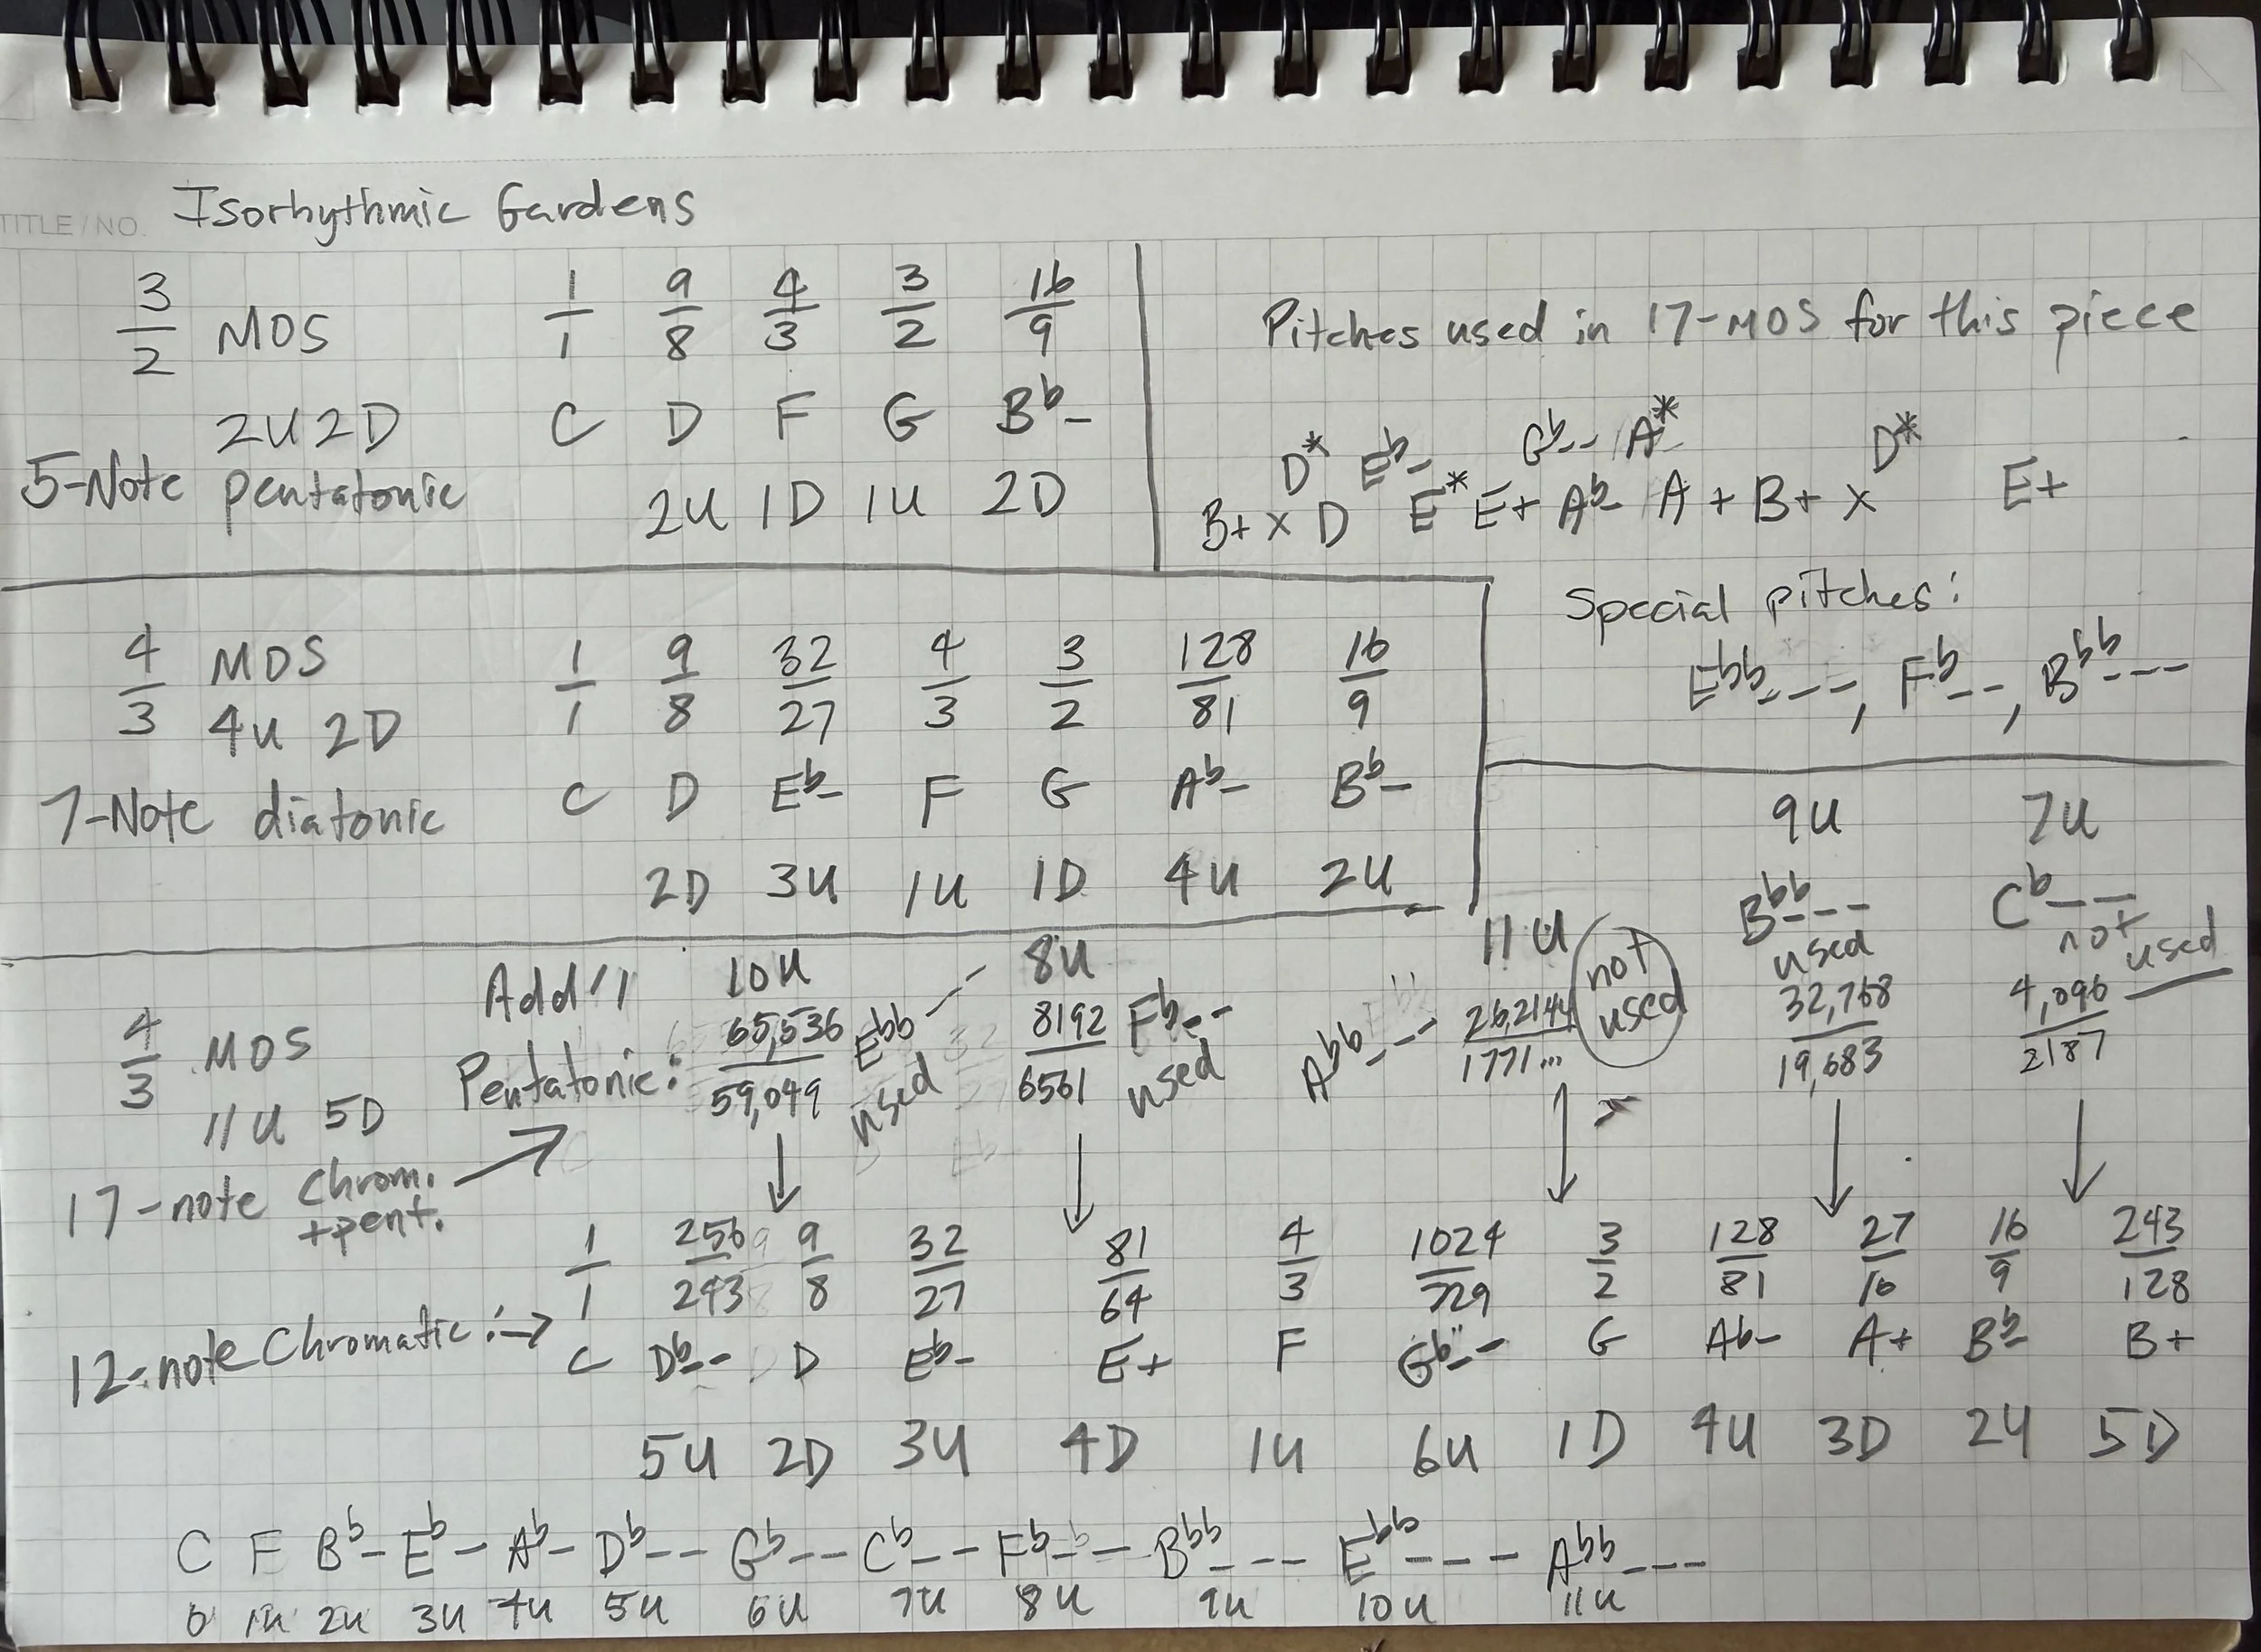 TITLE/NO. Isorhythmic Gardens
3/2 MOS 1/1 9/8 4/3 3/2 16/9
2U2D C D F G Bb-
5-Note pentatonic 2U 1D 1U 2D
Pitches used in 17-MOS for this piece
D* Eb- Gb-- A* D*
B+ x D E* E+ Ab- A+ B+ x E+
Special pitches:
Ebb---, Fb--, Bbb---
4/3 MOS 1/1 9/8 32/27 4/3 3/2 128/81 16/9
4U 2D
7-Note diatonic C D Eb- F G Ab- Bb-
2D 3U 1U 1D 4U 2U
9U 7U
Bbb--- Cb--
used not used
32,768/19,683 4,096/2187
Add'l 10U 8U 11U not used
Pentatonic: 65,536/59,049 Ebb--- used 8192/6561 Fb-- used Abb--- 26,2144/1771...
4/3 MOS
11U 5D
17-note chrom. →
+pent.
1/1 256/243 9/8 32/27 81/64 4/3 1024/729 3/2 128/81 27/16 16/9 243/128
12-note Chromatic:→ C Db-- D Eb- E+ F Gb-- G Ab- A+ Bb- B+
5U 2D 3U 4D 1U 6U 1D 4U 3D 2U 5D
C F Bb- Eb- Ab- Db-- Gb-- Cb-- Fb-- Bbb--- Ebb--- Abb---
0 1U 2U 3U 4U 5U 6U 7U 8U 9U 10U 11U